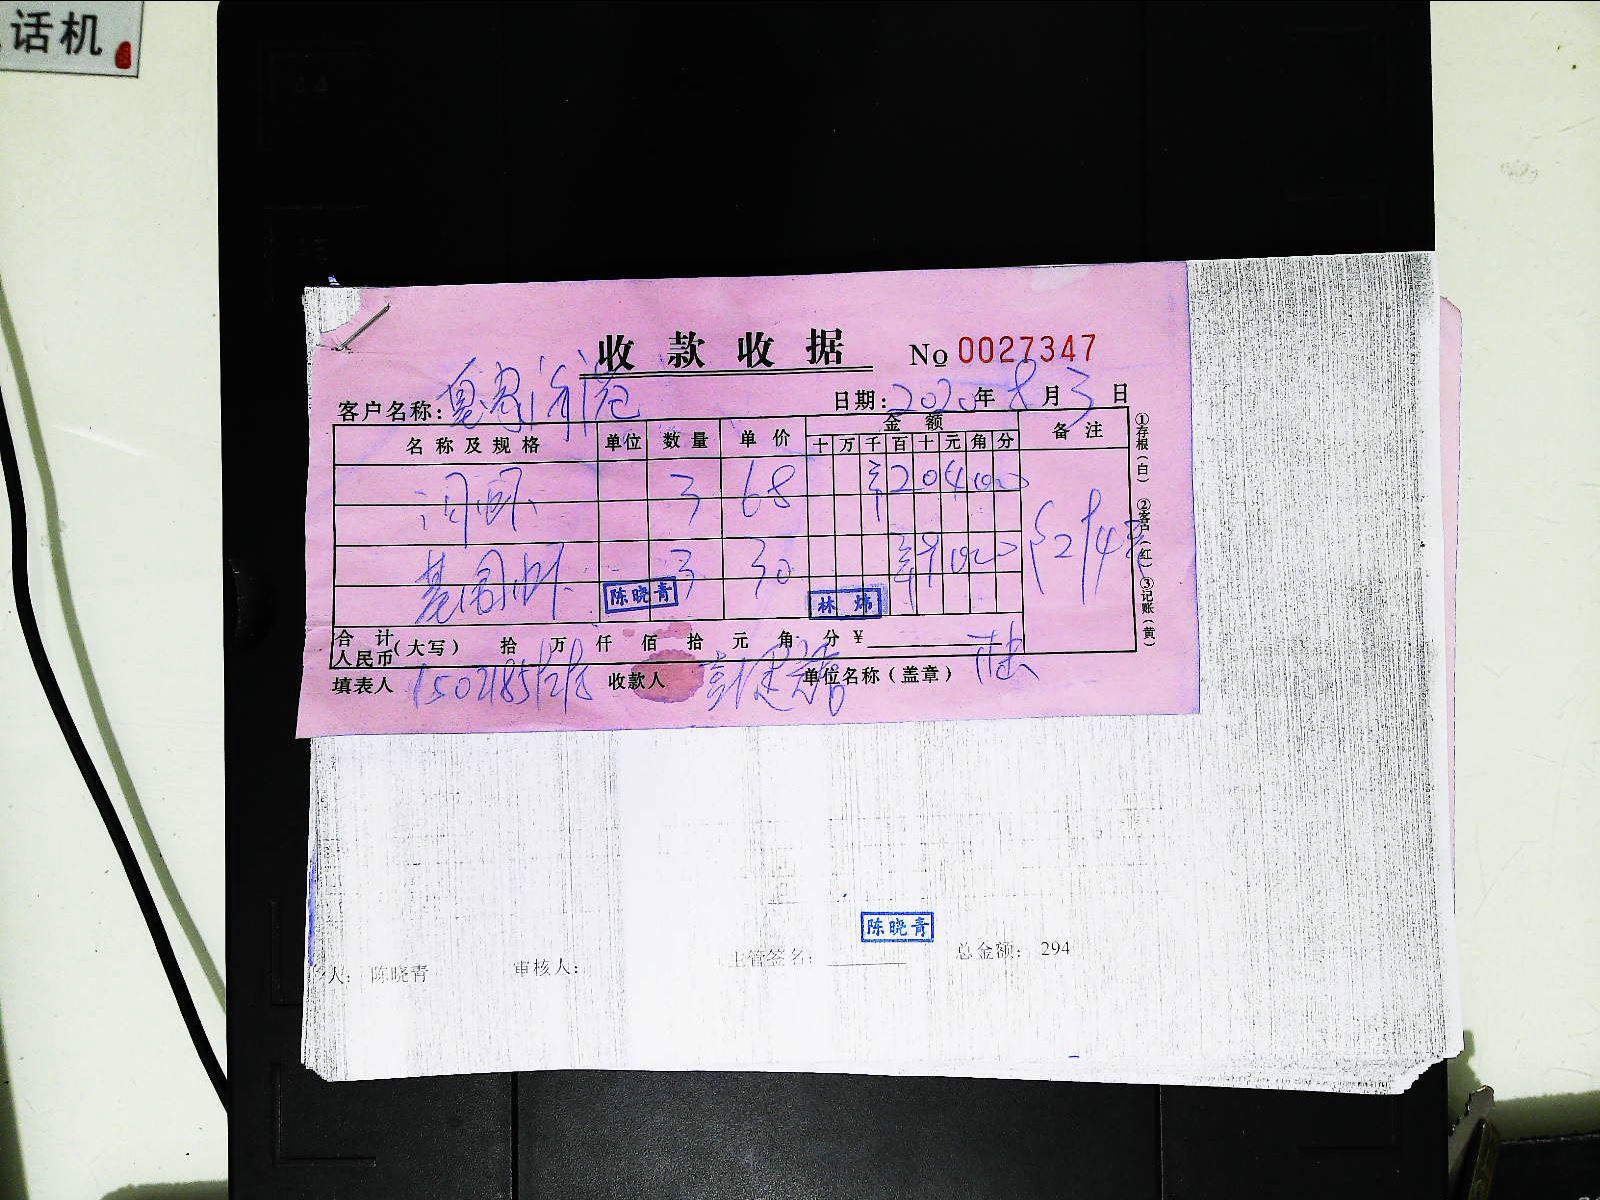 话机
收款收据 No 0027347
客户名称:
日期: 2020 年 8 月 3 日
名称及规格 单位 数量 单价 金额 备注
十 万 千 百 十 元 角 分
3 68 ¥ 2 0 4 0 0
基围虾 3 30 ¥ 9 0 0 0
陈晓青 林炜
合计人民币(大写) 拾 万 仟 佰 拾 元 角 分 ¥
填表人 收款人 单位名称(盖章)
①存根(白) ②客户(红) ③记账(黄)
陈晓青
人: 陈晓青 审核人: 主管签名: 总金额: 294